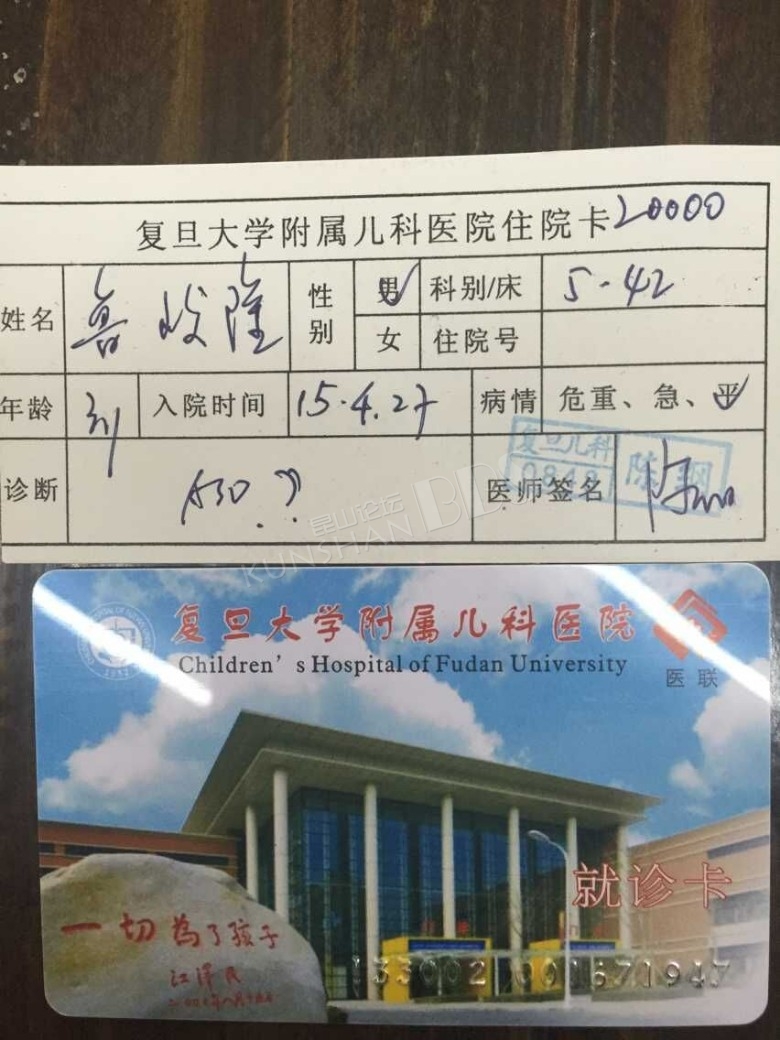 复旦大学附属儿科医院住院卡 20000
姓名 鲁峻隆 性别 男 科别/床 5-42
女 住院号
年龄 入院时间 15.4.27 病情 危重、急、平
诊断 ASD?? 医师签名
复旦儿科
0849 陈纲
昆山论坛 BBS
KUNSHAN
复旦大学附属儿科医院
Children's Hospital of Fudan University
医联
1952
就诊卡
一切為了孩子
江泽民
133002 001671947